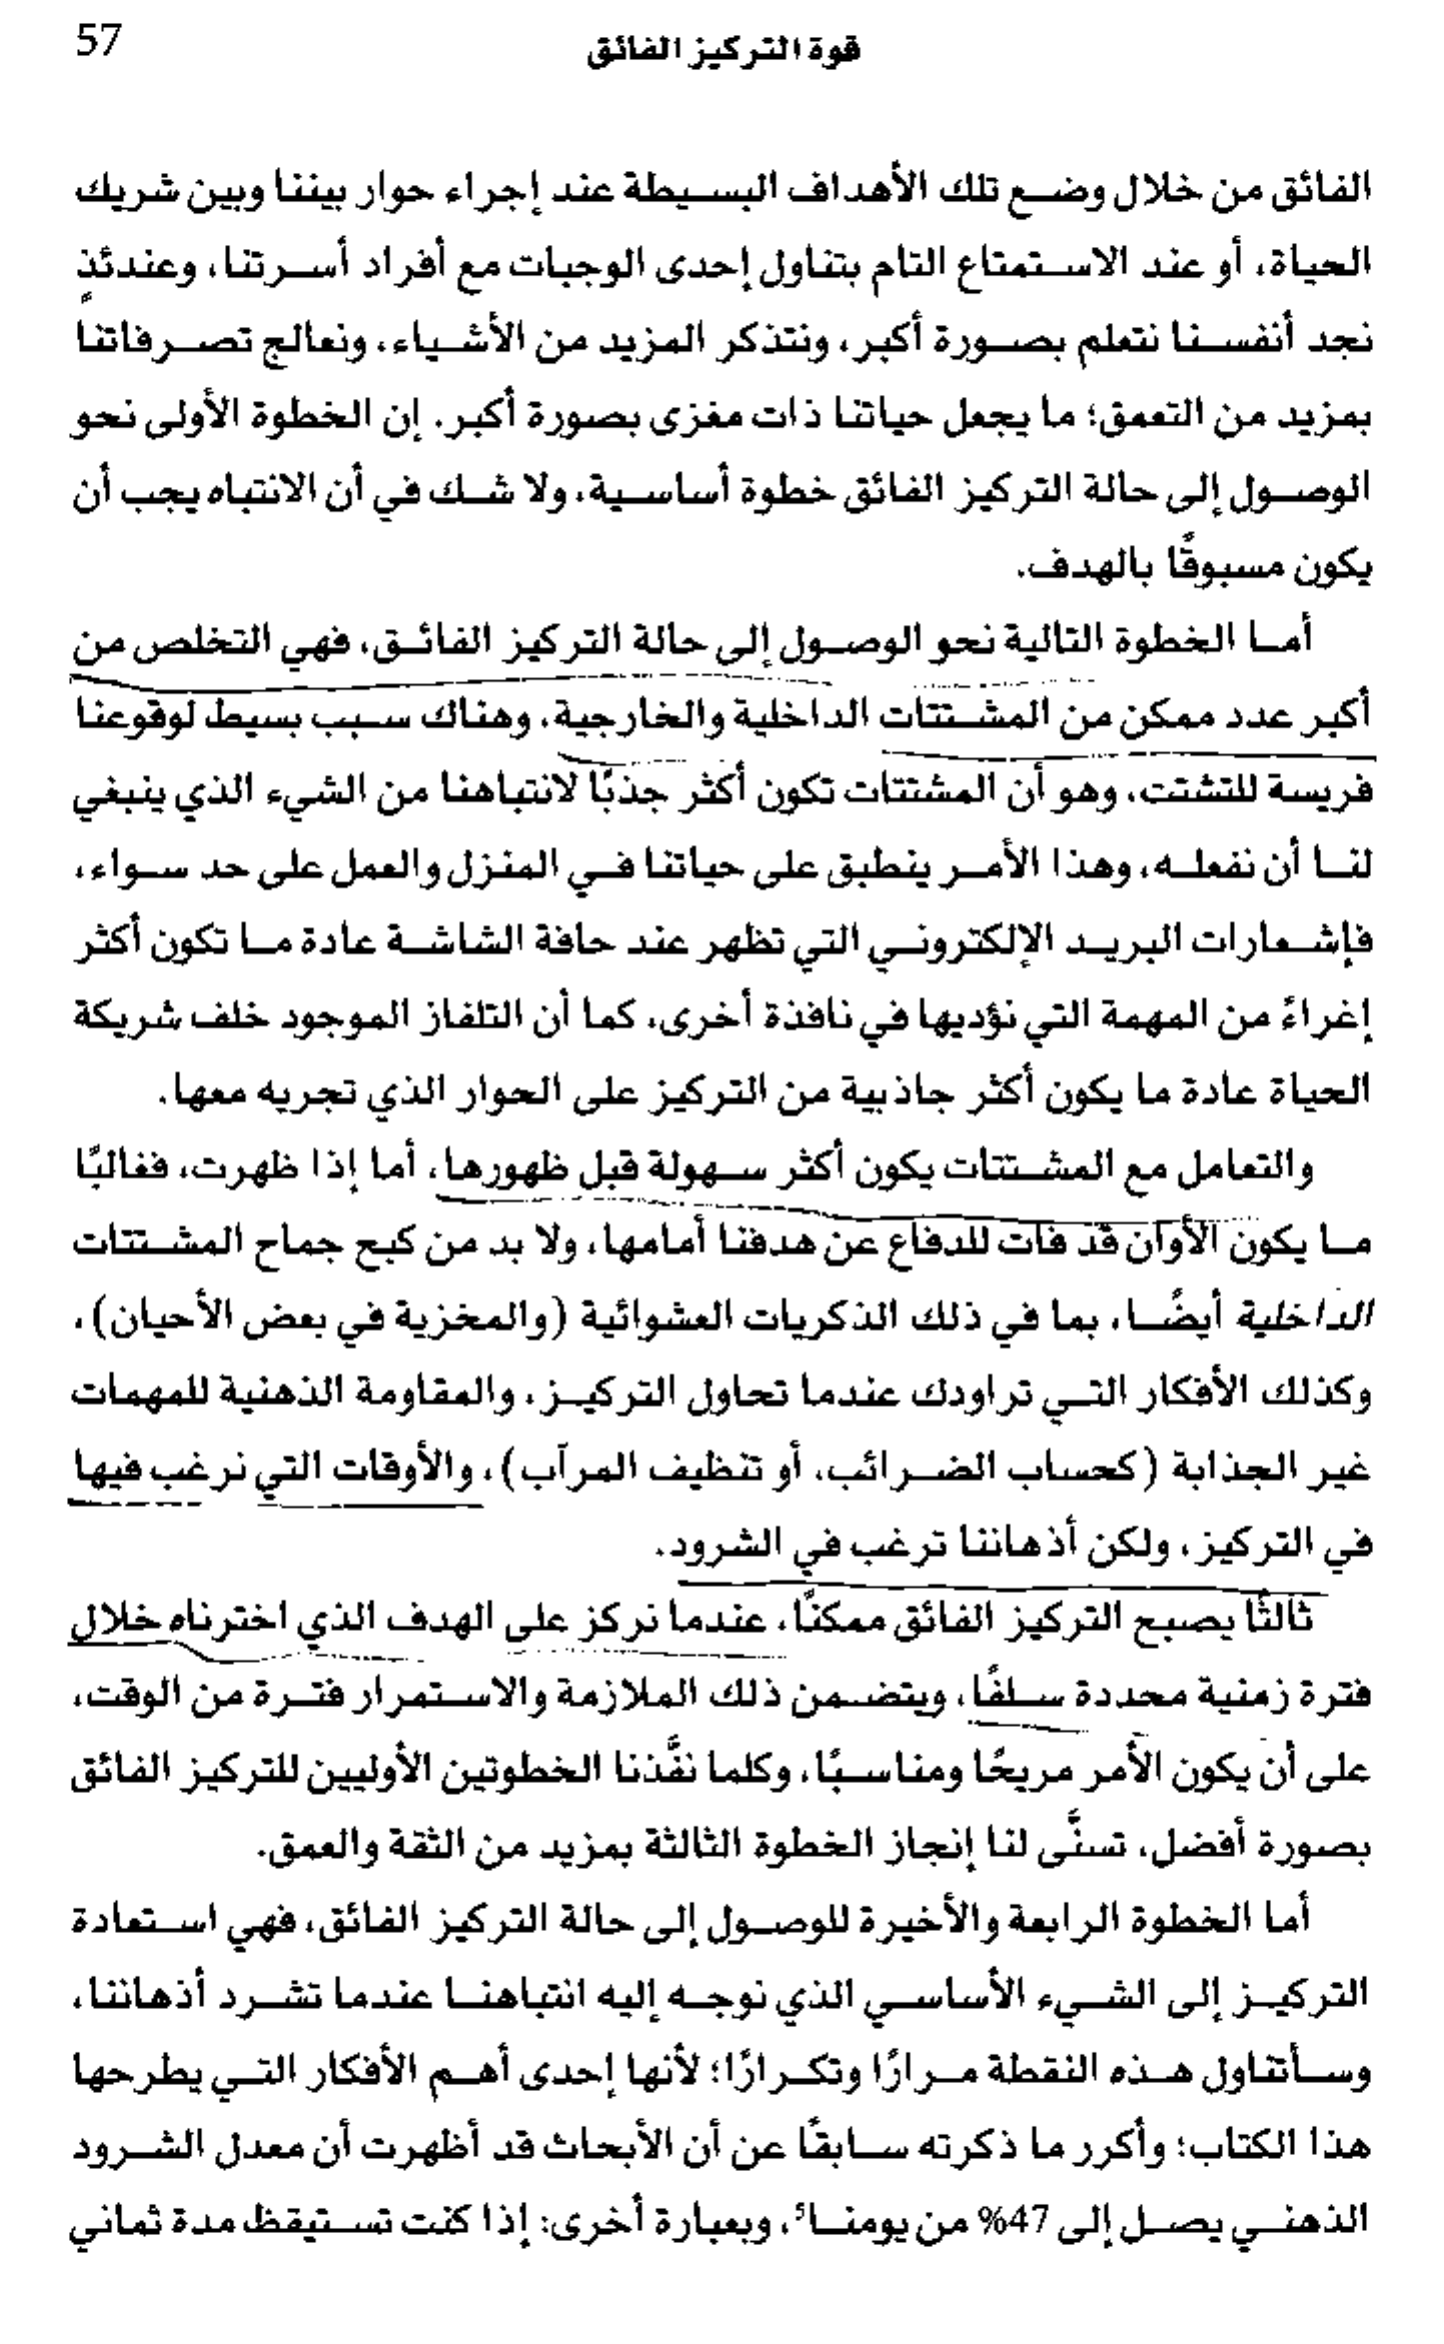 57
قوة التركيز الفائق
الفائق من خلال وضع تلك الأهداف البسيطة عند إجراء حوار بيننا وبين شريك
الحياة، أو عند الاستمتاع التام بتناول إحدى الوجبات مع أفراد أسرتنا، وعندئذٍ
نجد أنفسنا نتعلم بصورة أكبر، ونتذكر المزيد من الأشياء، ونعالج تصرفاتنا
بمزيد من التعمق؛ ما يجعل حياتنا ذات مغزى بصورة أكبر. إن الخطوة الأولى نحو
الوصول إلى حالة التركيز الفائق خطوة أساسية، ولا شك في أن الانتباه يجب أن
يكون مسبوقًا بالهدف.
أما الخطوة التالية نحو الوصول إلى حالة التركيز الفائق، فهي التخلص من
أكبر عدد ممكن من المشتتات الداخلية والخارجية، وهناك سبب بسيط لوقوعنا
فريسة للتشتت، وهو أن المشتتات تكون أكثر جذبًا لانتباهنا من الشيء الذي ينبغي
لنا أن نفعله، وهذا الأمر ينطبق على حياتنا في المنزل والعمل على حد سواء،
فإشعارات البريد الإلكتروني التي تظهر عند حافة الشاشة عادة ما تكون أكثر
إغراءً من المهمة التي نؤديها في نافذة أخرى، كما أن التلفاز الموجود خلف شريكة
الحياة عادة ما يكون أكثر جاذبية من التركيز على الحوار الذي تجريه معها.
والتعامل مع المشتتات يكون أكثر سهولة قبل ظهورها، أما إذا ظهرت، فغالبًا
ما يكون الأوان قد فات للدفاع عن هدفنا أمامها، ولا بد من كبح جماح المشتتات
الداخلية أيضًا، بما في ذلك الذكريات العشوائية (والمخزية في بعض الأحيان)،
وكذلك الأفكار التي تراودك عندما تحاول التركيز، والمقاومة الذهنية للمهمات
غير الجذابة (كحساب الضرائب، أو تنظيف المرآب)، والأوقات التي نرغب فيها
في التركيز، ولكن أذهاننا ترغب في الشرود.
ثالثًا يصبح التركيز الفائق ممكنًا، عندما نركز على الهدف الذي اخترناه خلال
فترة زمنية محددة سلفًا، ويتضمن ذلك الملازمة والاستمرار فترة من الوقت،
على أن يكون الأمر مريحًا ومناسبًا، وكلما نفَّذنا الخطوتين الأوليين للتركيز الفائق
بصورة أفضل، تسنَّى لنا إنجاز الخطوة الثالثة بمزيد من الثقة والعمق.
أما الخطوة الرابعة والأخيرة للوصول إلى حالة التركيز الفائق، فهي استعادة
التركيز إلى الشيء الأساسي الذي نوجه إليه انتباهنا عندما تشرد أذهاننا،
وسأتناول هذه النقطة مرارًا وتكرارًا؛ لأنها إحدى أهم الأفكار التي يطرحها
هذا الكتاب؛ وأكرر ما ذكرته سابقًا عن أن الأبحاث قد أظهرت أن معدل الشرود
الذهني يصل إلى 47% من يومنا⁵، وبعبارة أخرى: إذا كنت تستيقظ مدة ثماني